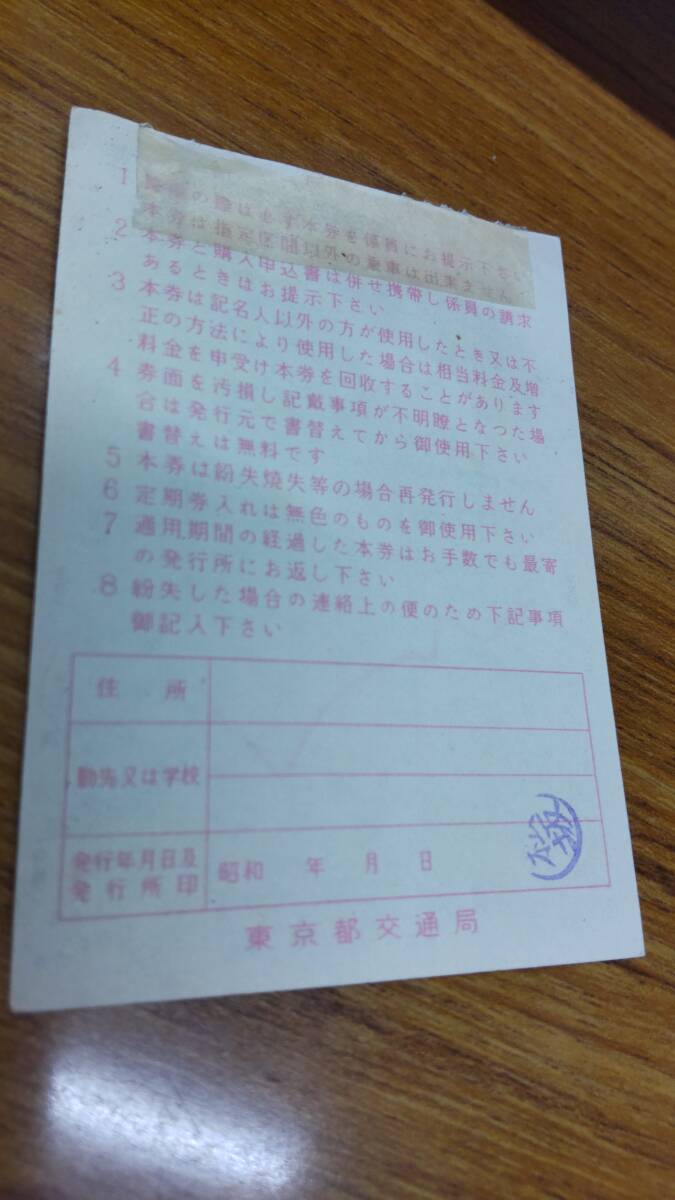 1 の際は必ず本券を係員にお提示下さい
本券は指定区間以外の乗車は出来ません
2 本券と購入申込書は併せ携帯し係員の請求
あるときはお提示下さい
3 本券は記名人以外の方が使用したとき又は不
正の方法により使用した場合は相当料金及増
料金を申受け本券を回収することがあります
4 券面を汚損し記載事項が不明瞭となつた場
合は発行元で書替えてから御使用下さい
書替えは無料です
5 本券は紛失焼失等の場合再発行しません
6 定期券入れは無色のものを御使用下さい
7 通用期間の経過した本券はお手数でも最寄
の発行所にお返し下さい
8 紛失した場合の連絡上の便のため下記事項
御記入下さい
住所
勤先又は学校
発行年月日及
発行所印
昭和 年 月 日
東京都交通局